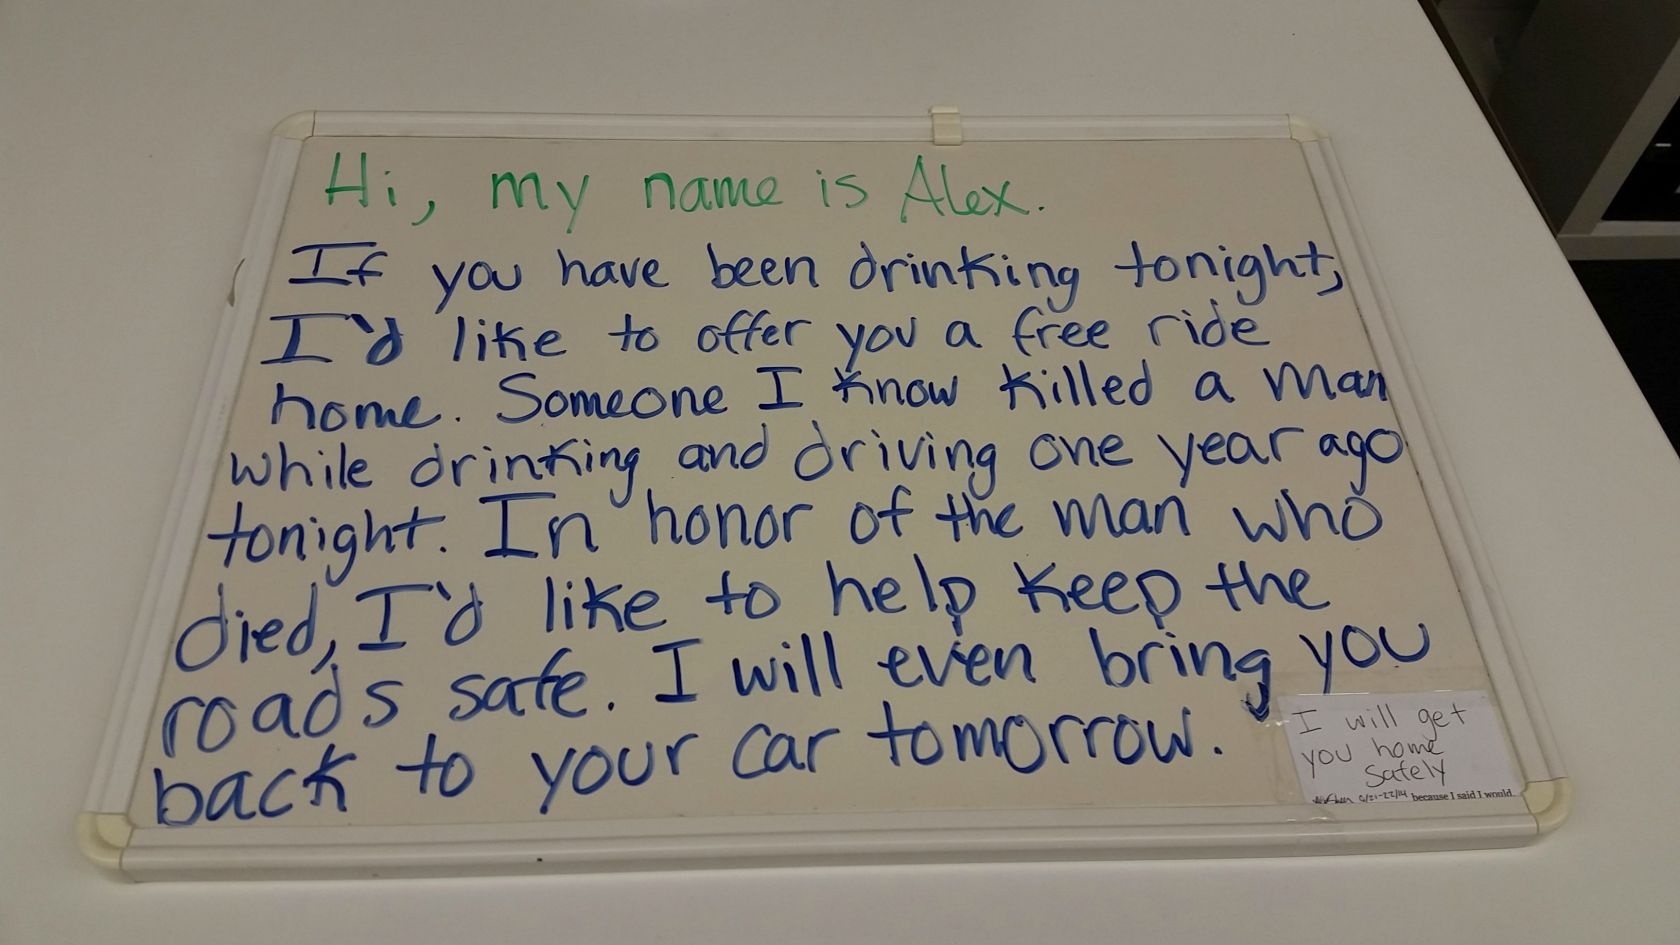 Hi, my name is Alex.
If you have been drinking tonight,
I'd like to offer you a free ride
home. Someone I know killed a man
while drinking and driving one year ago
tonight. In honor of the man who
died, I'd like to help keep the
roads safe. I will even bring you
back to your car tomorrow.
I will get
you home
safely
6/21-22/14 because I said I would.